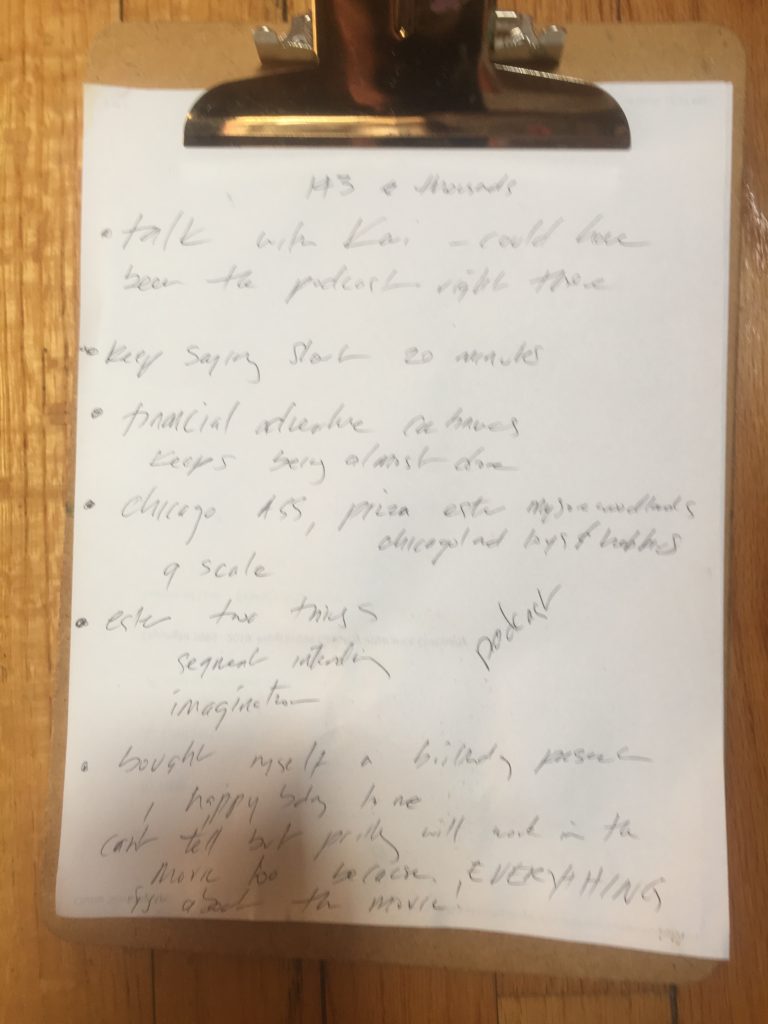 thousands
• talk with Kai – could have
been the podcast right there
• keep saying start 20 minutes
• financial adventure continues
keeps being almost done
• chicago ASS, pizza ester
chicagoland toys & hobbies
a scale
• ester two things
segment intending
podcast
imagination
• bought myself a birthday present
, happy bday to me
can't tell but prtty will work in the
movie too because, EVERYTHING
is about the movie!